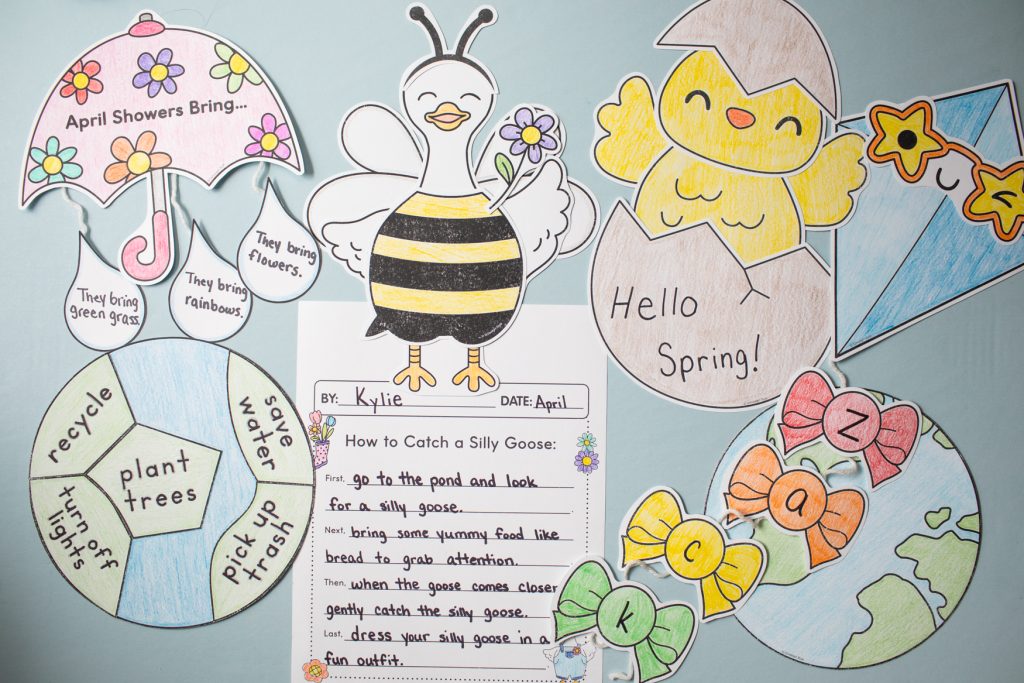 April Showers Bring...
They bring
green grass.
They bring
rainbows.
They bring
flowers.
Hello
Spring!
recycle
save
water
plant
trees
turn off
lights
pick up
trash
BY: Kylie DATE: April
How to Catch a Silly Goose:
First, go to the pond and look
for a silly goose.
Next, bring some yummy food like
bread to grab attention.
Then, when the goose comes closer
gently catch the silly goose.
Last, dress your silly goose in a
fun outfit.
z
a
c
k